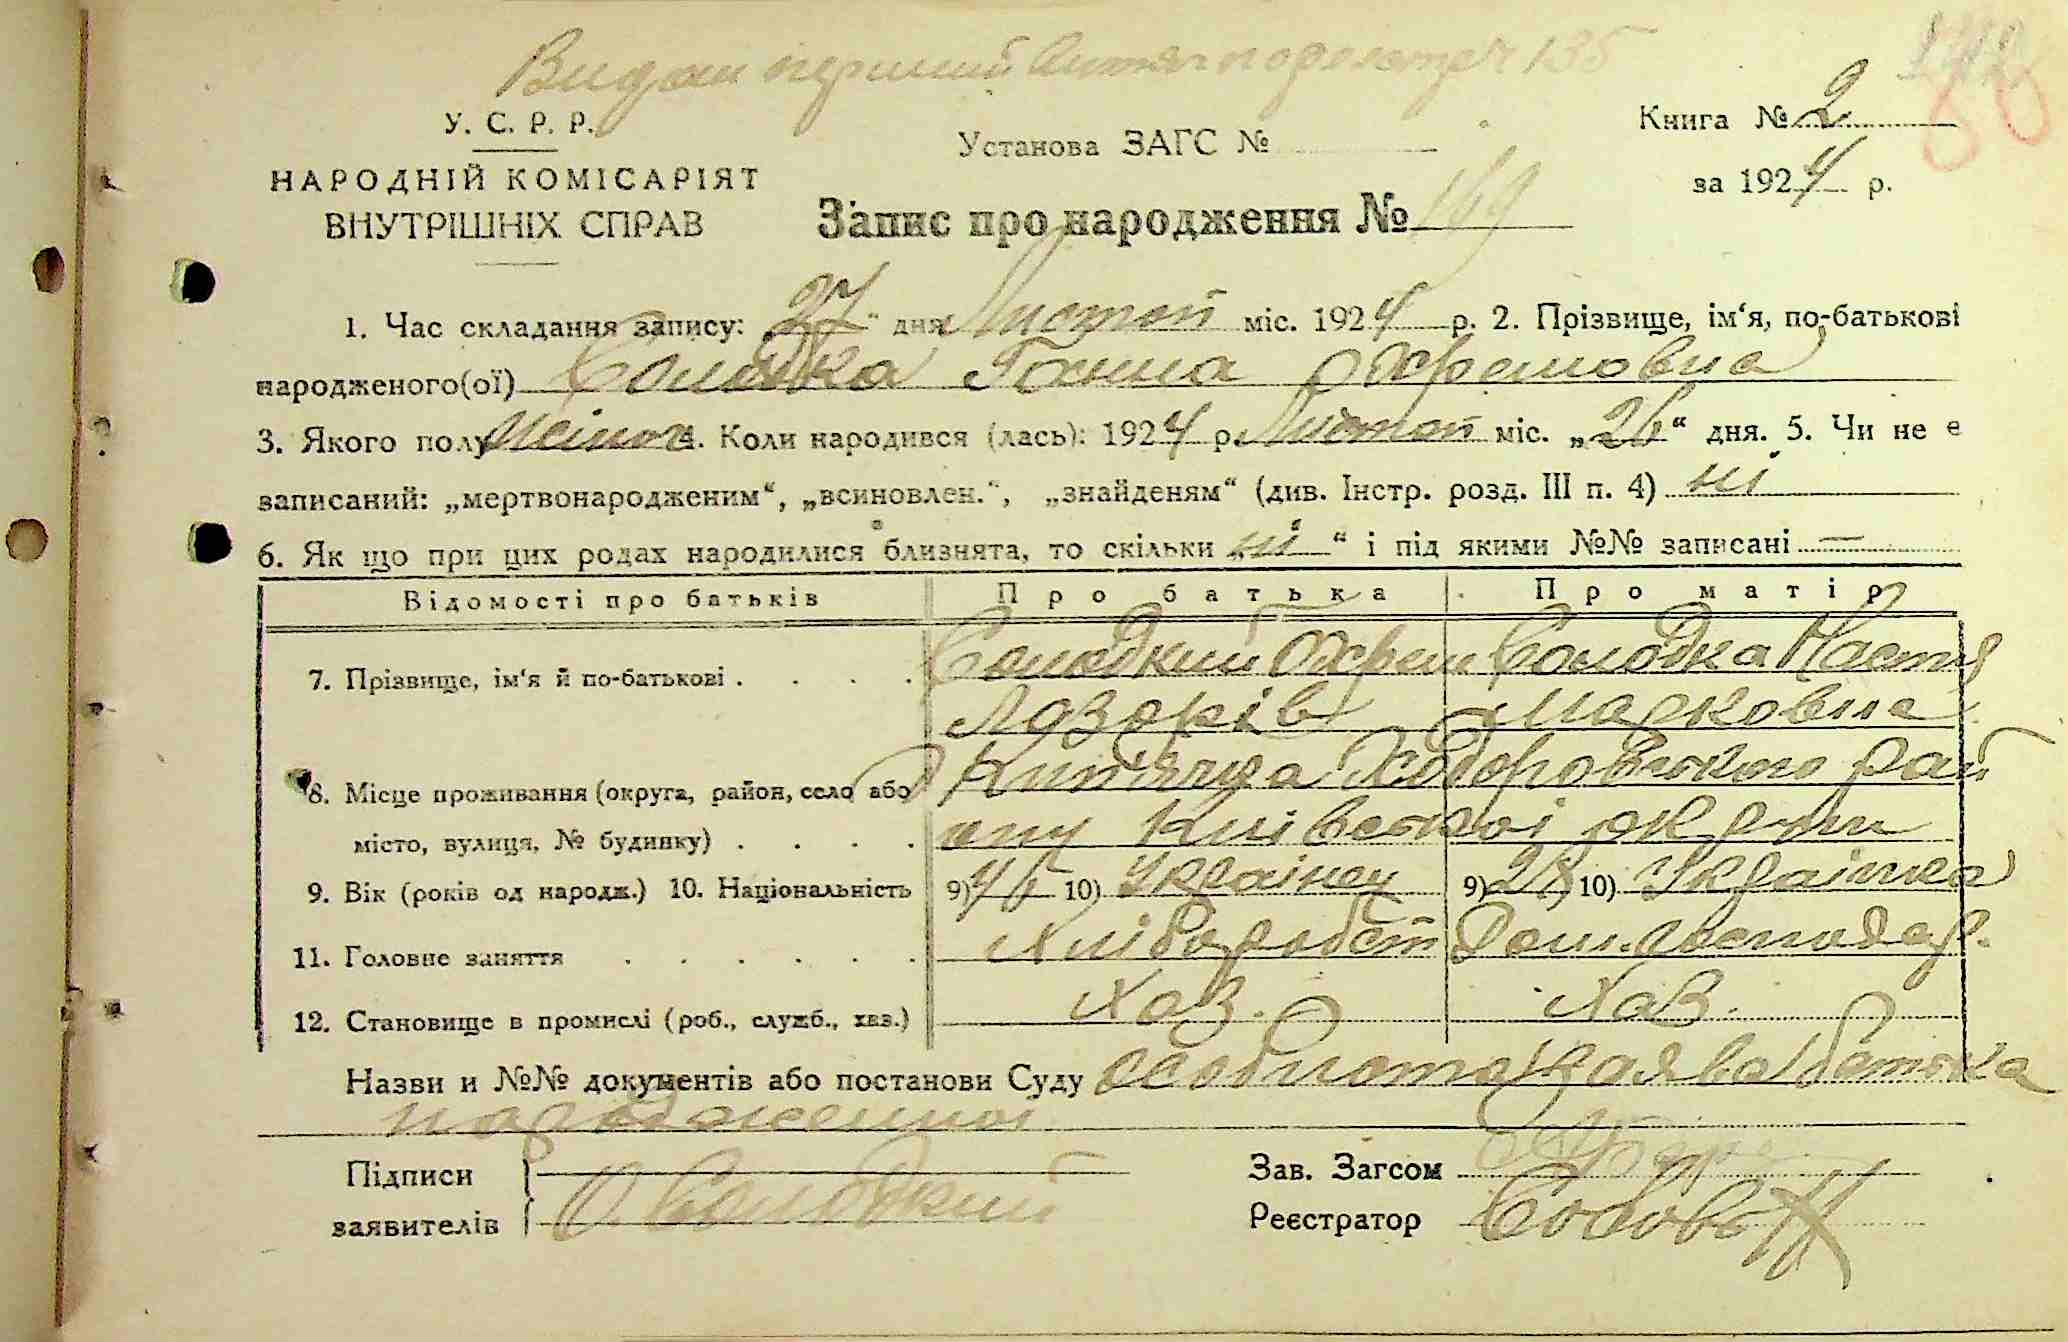 Видан перший 135
У. С. Р. Р.
НАРОДНІЙ КОМІСАРІЯТ
ВНУТРІШНІХ СПРАВ
Установа ЗАГС №
Книга № 2
за 1924 р.
Запис про народження № 169
1. Час складання запису: „27“ дня Листоп міс. 1924 р. 2. Прізвище, ім‘я, по-батькові
народженого(ої) Солодка Ганна Охремовна
3. Якого полу жіноч 4. Коли народився (лась): 1924 р. Листоп міс. „26“ дня. 5. Чи не є
записаний: „мертвонародженим“, „всиновлен.“, „знайденям“ (див. Інстр. розд. III п. 4) ні
6. Як що при цих родах народилися близнята, то скільки „ні“ і під якими №№ записані —
Відомості про батьків Про батька Про матір
7. Прізвище, ім‘я й по-батькові . . . . Солодкий Охрем Солодка Настя
Лазорів Марковна
8. Місце проживання (округа, район, село або Кип'ячка Ходоровського рай
місто, вулиця, № будинку) . . . . ону Київської округи
9. Вік (років од народж.) 10. Національність 9) 46 10) Українец 9) 28 10) Українка
11. Головне заняття . . . . . . Хліборобст Дом. господар.
12. Становище в промислі (роб., служб., хаз.) Хаз. Хаз.
Назви и №№ документів або постанови Суду особиста заява батька
народженної
Підписи
заявителів О. Солодкий
Зав. Загсом
Реєстратор